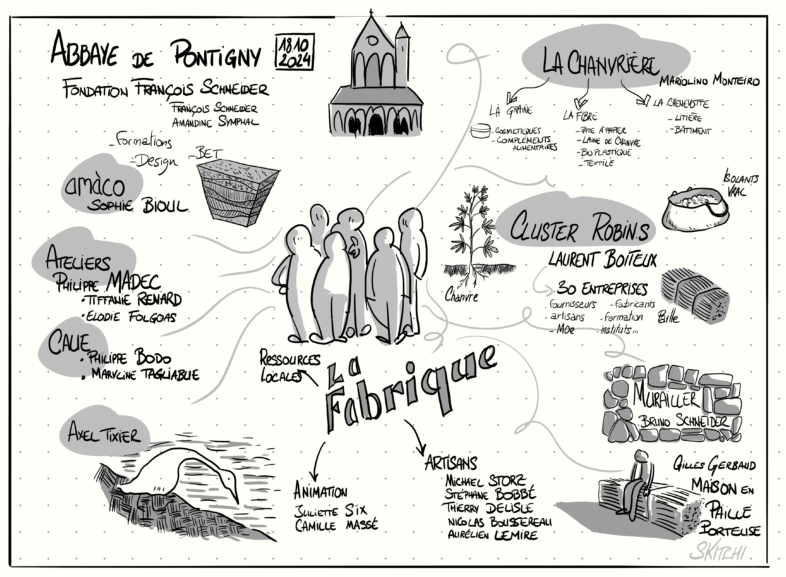 ABBAYE DE PONTIGNY
18.10
2024
FONDATION FRANÇOIS SCHNEIDER
FRANÇOIS SCHNEIDER
AMANDINE SYMPHAL
- Formations
- Design
- BET
amàco
SOPHIE BIOUL
ATELIERS
PHILIPPE MADEC
• TIFFANIE RENARD
• ELODIE FOLGOAS
CAUE
• PHILIPPE BODO
• MARYLINE TAGLIABUE
AXEL TIXIER
RESSOURCES
LOCALES
La
Fabrique
ANIMATION
JULIETTE SIX
CAMILLE MASSÉ
ARTISANS
MICHAEL STORZ
STÉPHANE BOBBÉ
THIERRY DELISLE
NICOLAS BOUSSEREAU
AURÉLIEN LEMIRE
LA CHANVRIÈRE
MARIOLINO MONTEIRO
LA GRAINE
- COSMETIQUES
- COMPLEMENTS
ALIMENTAIRES
LA FIBRE
- PATE A PAPIER
- LAINE DE CHANVRE
- BIO PLASTIQUE
- TEXTILE
LA CHENEVOTTE
- LITIÈRE
- BÂTIMENT
ISOLANTS
VRAC
Chanvre
CLUSTER ROBINS
LAURENT BOITEUX
30 ENTREPRISES
- fournisseurs
- artisans
- MOe
- Fabricants
- formation
- instituts...
Paille
MURAILLER
BRUNO SCHNEIDER
GILLES GERBAUD
MAISON EN
PAILLE
PORTEUSE
SKITCHI